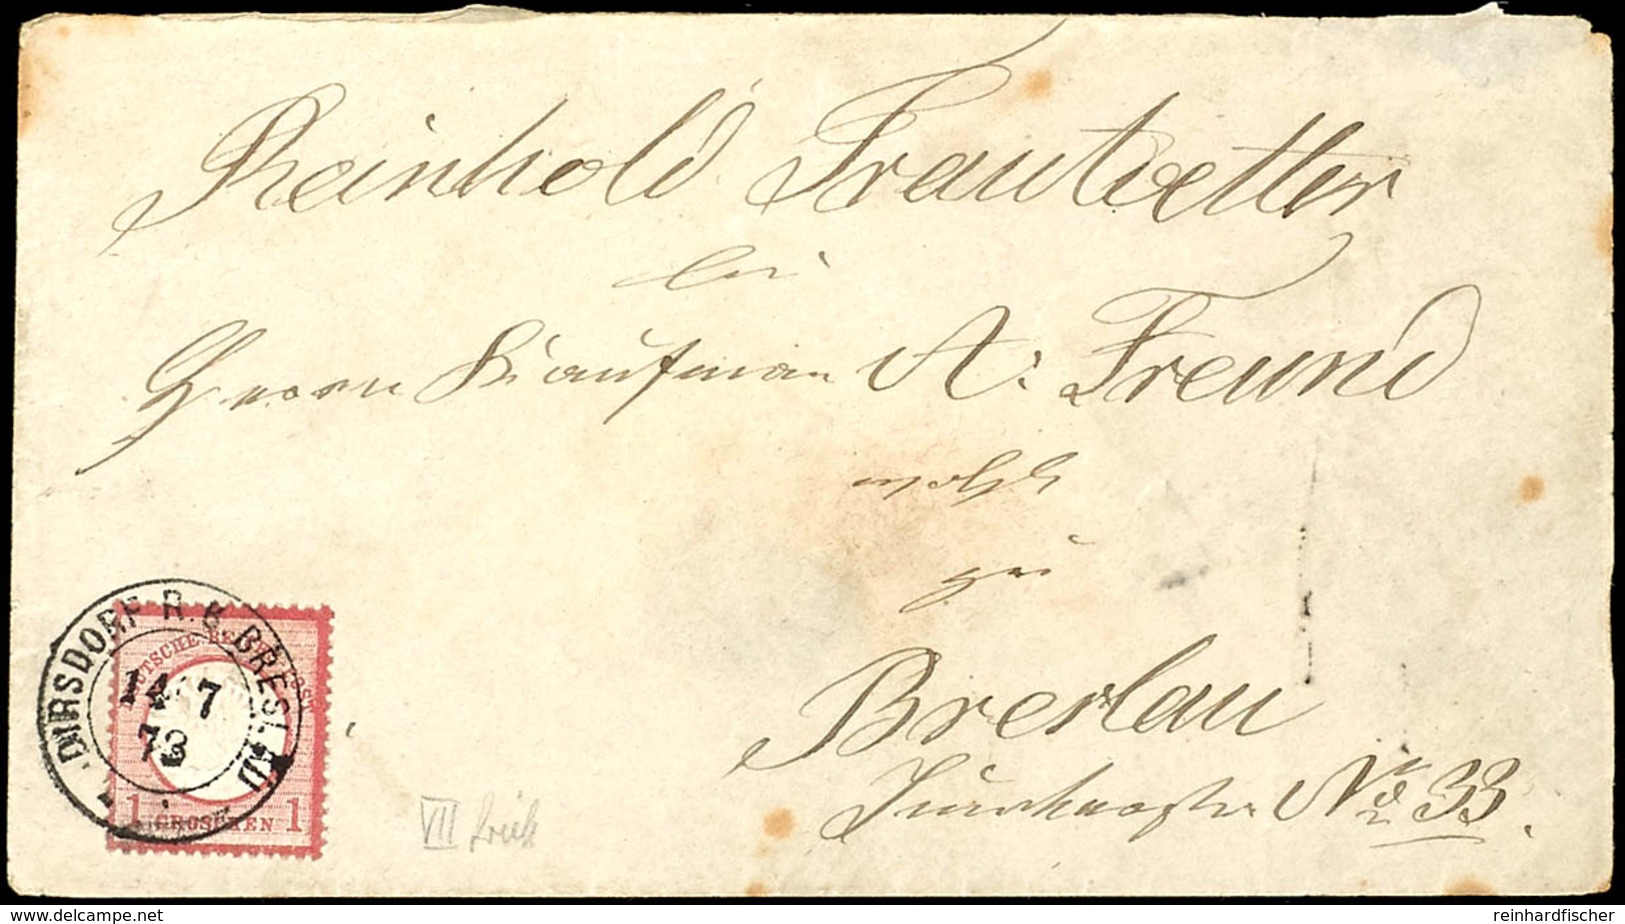 Reinhold Trautvetter
bei
Herrn Kaufman A. Freund
wohlg
zu
Breslau
No 33.
DIRSDORF R. B. BRESLAU
14 7
73
DEUTSCHE REICHS-POST
1 GROSCHEN 1
VII
delcampe.net
reinhardfischer